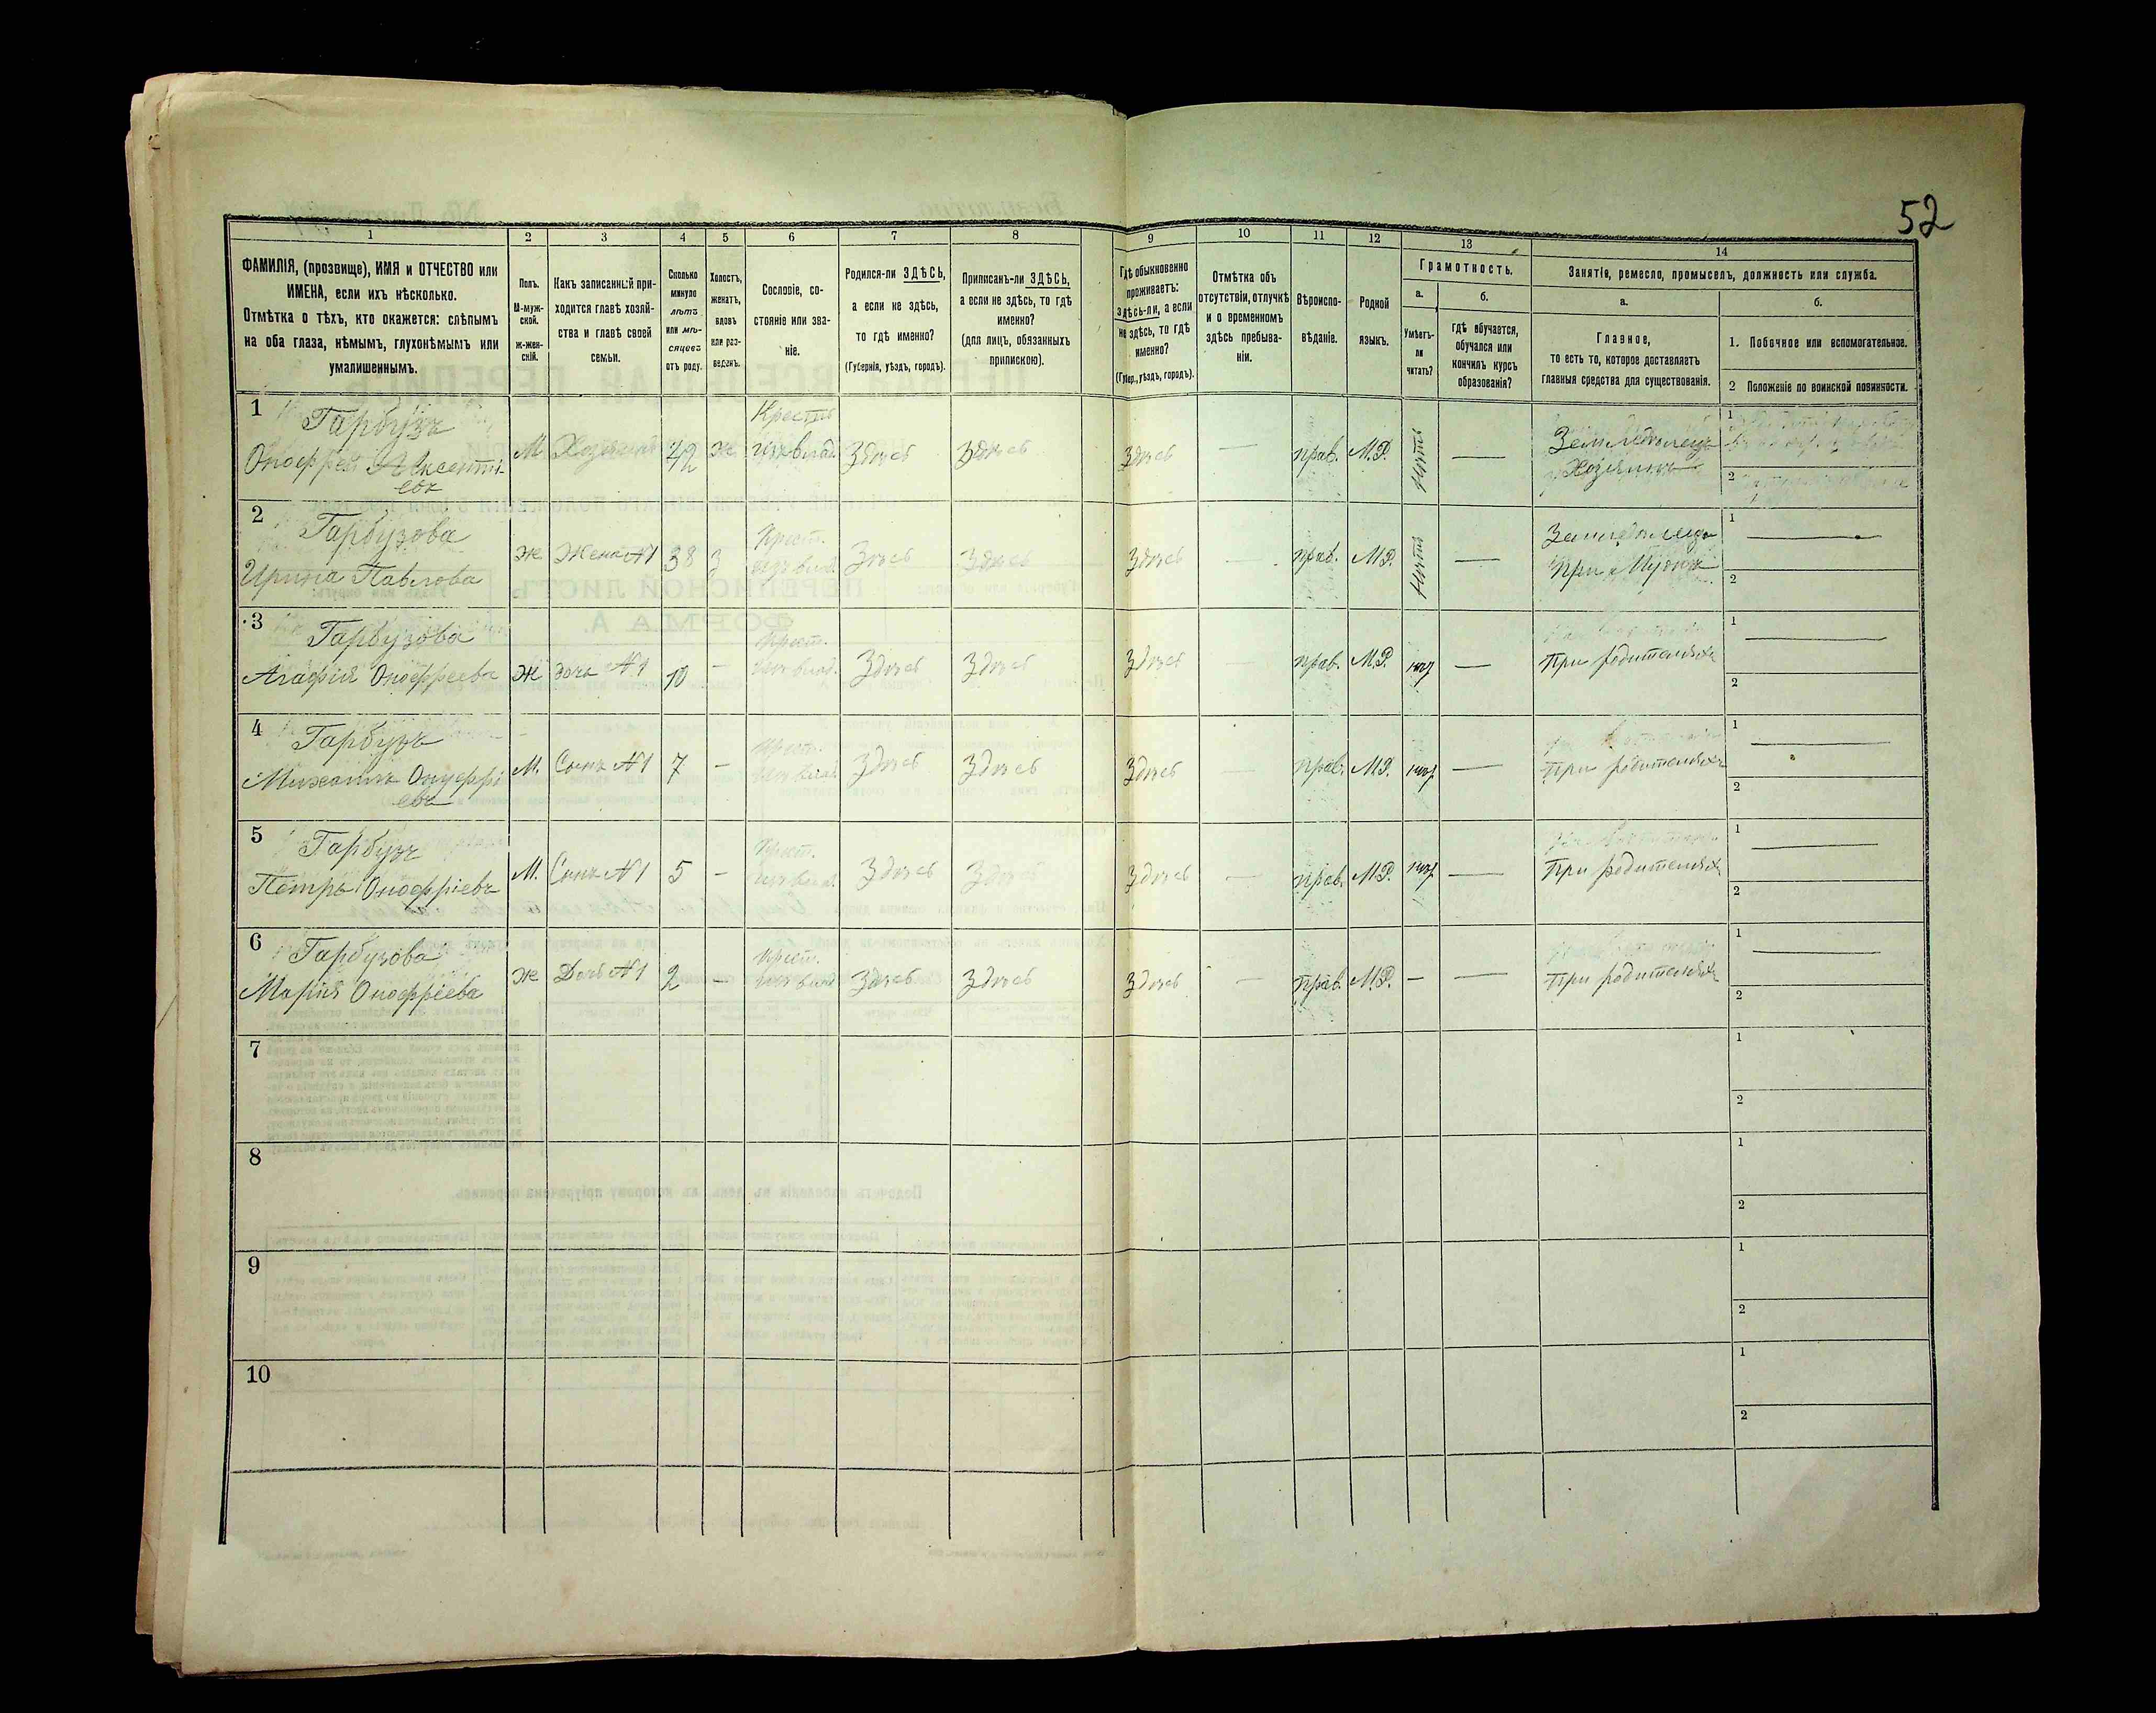 52
1 2 3 4 5 6 7 8 9 10 11 12 13 14
ФАМИЛІЯ, (прозвище), ИМЯ и ОТЧЕСТВО или
ИМЕНА, если ихъ нѣсколько.
Отмѣтка о тѣхъ, кто окажется: слѣпымъ
на оба глаза, нѣмымъ, глухонѣмымъ или
умалишеннымъ.
Полъ.
М-муж-
ской.
ж-жен-
скій.
Какъ записанный при-
ходится главѣ хозяй-
ства и главѣ своей
семьи.
Сколько
минуло
лѣтъ
или мѣ-
сяцевъ
отъ роду.
Холостъ,
женатъ,
вдовъ
или раз-
веденъ.
Сословіе, со-
стояніе или зва-
ніе.
Родился-ли ЗДѢСЬ,
а если не здѣсь,
то гдѣ именно?
(Губернія, уѣздъ, городъ).
Приписанъ-ли ЗДѢСЬ,
а если не здѣсь, то гдѣ
именно?
(для лицъ, обязанныхъ
припискою).
Гдѣ обыкновенно
проживаетъ:
здѣсь-ли, а если
не здѣсь, то гдѣ
именно?
(Губер., уѣздъ, городъ).
Отмѣтка объ
отсутствіи, отлучкѣ
и о временномъ
здѣсь пребыва-
ніи.
Вѣроиспо-
вѣданіе.
Родной
языкъ.
Грамотность.
а.
Умѣетъ-
ли
читать?
б.
гдѣ обучается,
обучался или
кончилъ курсъ
образованія?
Занятіе, ремесло, промыселъ, должность или служба.
а.
Главное,
то есть то, которое доставляетъ
главныя средства для существованія.
б.
1. Побочное или вспомогательное.
2 Положеніе по воинской повинности.
1 Гарбузъ Крестъ 1
Оноффрей Аксенті- М Хозяинъ 42 ж изъ влад. Здѣсь Здѣсь Здѣсь — прав. М.Р. нѣтъ — Земледѣлецъ
евъ Хозяинъ 2
2 Гарбузова Крест. Земледѣлица 1 —
Ирина Павлова ж Жена №1 38 З изъ влад. Здѣсь Здѣсь Здѣсь — прав. М.Р. нѣтъ — при мужѣ 2
3 Гарбузова Крест. 1 —
Агафія Оноффреева ж дочь №1 10 — изъ влад. Здѣсь Здѣсь Здѣсь — прав. М.Р. — при родителяхъ 2
4 Гарбузъ Крест. 1 —
Михаилъ Онуффрі М. Сынъ №1 7 — изъ влад. Здѣсь Здѣсь Здѣсь — прав. М.Р. — при родителяхъ
евъ 2
5 Гарбузъ Крест. 1 —
Петръ Оноффріевъ М. Сынъ №1 5 — изъ влад. Здѣсь Здѣсь Здѣсь — прав. М.Р. — При родителяхъ 2
6 Гарбузова Крест. 1 —
Марія Оноффріева ж Дочь №1 2 — изъ влад. Здѣсь Здѣсь Здѣсь — прав. М.Р. — — При родителяхъ 2
7 1
2
8 1
2
9 1
2
10 1
2